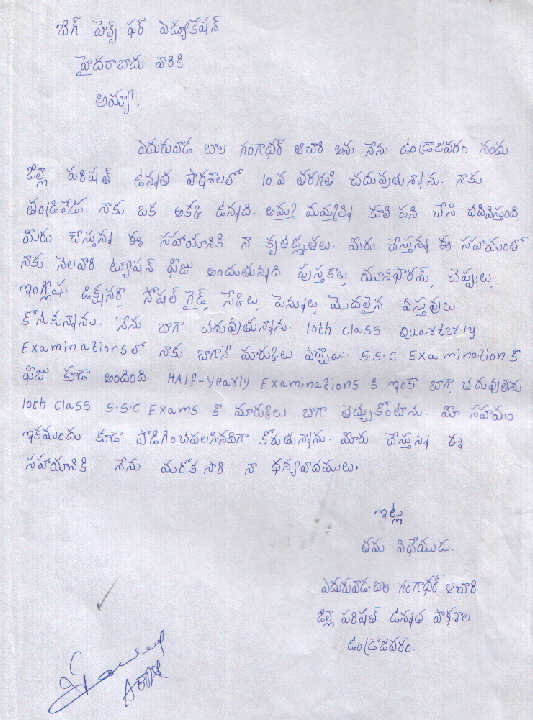 బిగ్ హెల్ప్ ఫర్ ఎడ్యుకేషన్
హైదరాబాదు వారికి
అమ్మా!
ఎదురువాడ బాల గంగాధర్ ఆచారి అను నేను ఉండ్రాజవరం నందు
జిల్లా పరిషత్ ఉన్నత పాఠశాలలో 10వ తరగతి చదువుతున్నాను. నాకు
తండ్రిలేడు. నాకు ఒక అక్క ఉన్నది. అమ్మ మమ్మల్ని కూలి పని చేసి చదివిస్తుంది
మీరు చేస్తున్న ఈ సహాయానికి నా కృతజ్ఞతలు. మీరు చేస్తున్న ఈ సహాయంలో
నాకు నెలవారి ట్యూషన్ ఫీజు అందుతున్నది పుస్తకాలు, యూనిఫారమ్, చెప్పులు,
ఇంగ్లీషు డిక్షనరీ సోషల్ గైడ్స్ పెన్నులు మొదలైన వస్తువులు
కొనుకున్నాను. నేను బాగా చదువుతున్నాను. 10th class Quarterly
Examinations లో నాకు బాగానే మార్కులు వచ్చాయి. S.S.C Examination కి
ఫీజు కూడా అందింది HAlf-Yearly Examinations కి ఇంకా బాగా చదువుతాను
10th class S.S.C Exams కి మార్కులు బాగా తెచ్చుకుంటాను. మీ సహాయం
ఇకముందు కూడా పొడిగించవలసినదిగా కోరుతున్నాను. మీరు చేస్తున్న ఈ
సహాయానికి నేను మరొక సారి నా ధన్యవాదములు.
ఇట్లు
తమ విధేయుడు.
ఎదురువాడ బాల గంగాధర్ ఆచారి
జిల్లా పరిషత్ ఉన్నత పాఠశాల
ఉండ్రాజవరం.